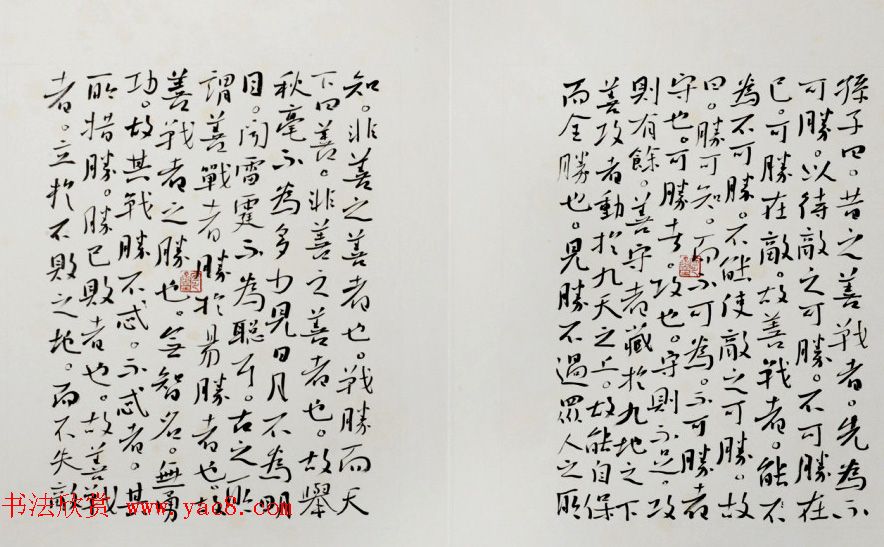 孫子曰。昔之善戰者。先為不
可勝。以待敵之可勝。不可勝在
已。可勝在敵。故善戰者。能不
為不可勝。不能使敵之可勝。故
曰。勝可知。而不可為。不可勝者
守也。可勝者。攻也。守則不足。攻
則有餘。善守者藏於九地之下
善攻者動於九天之上。故能自保
而全勝也。見勝不過眾人之所
知。非善之善者也。戰勝而天
下曰善。非善之善者也。故舉
秋毫不為多力見日月不為明
目。聞雷霆不為聰耳。古之所
謂善戰者勝於易勝者也故
善戰者之勝也。無智名。無勇
功。故其戰勝不忒。不忒者。其
所措勝。勝已敗者也。故善戰
者。立於不敗之地。而不失敵
书法欣赏 www.yac8.com